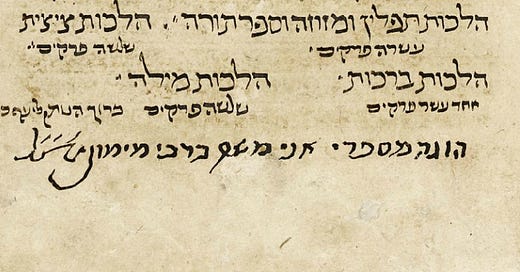 הלכות תפלין ומזוזה וספר תורה׳ הלכות ציצית
עשרה פרקים׳ שלשה פרקים
הלכות ברכות׳ הלכות מילה׳
אחד עשר פרקים שלשה פרקים ברוך הנותן ליעף כח
הוגה מספרי׳ אני משה ברבי מימון